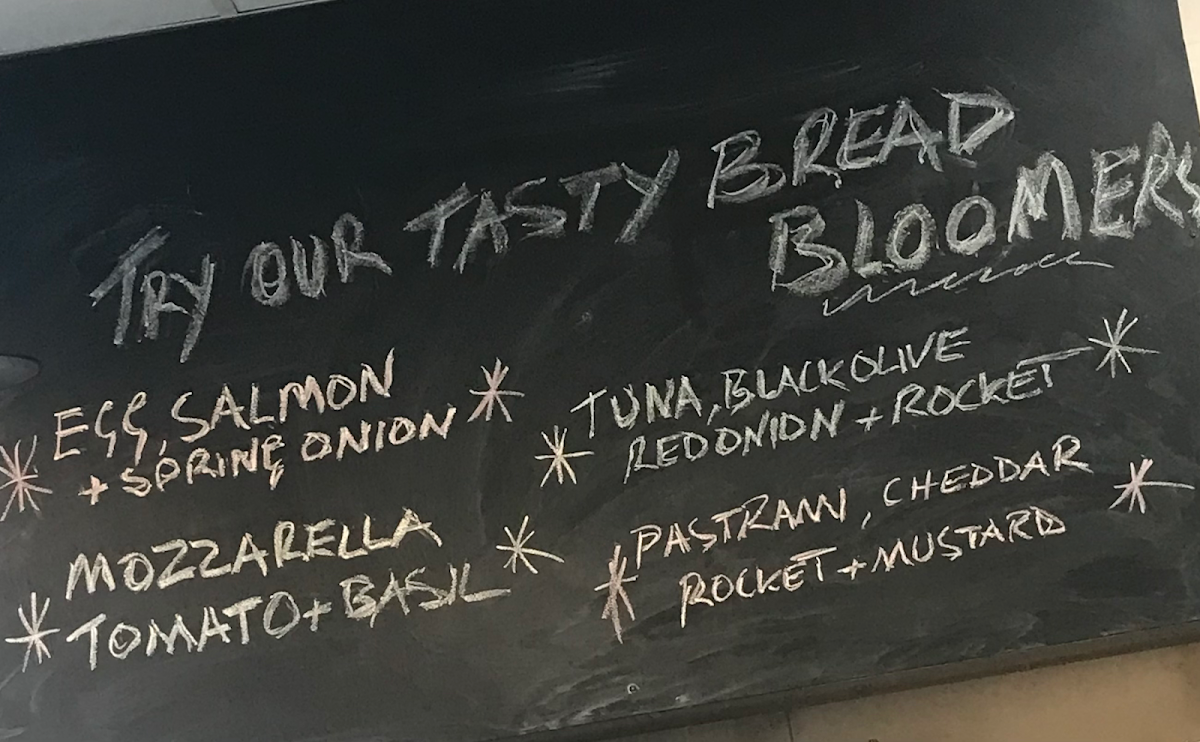 TRY OUR TASTY BREAD
BLOOMERS
EGG, SALMON
+ SPRING ONION
MOZZARELLA
TOMATO + BASIL
TUNA, BLACK OLIVE
RED ONION + ROCKET
PASTRAMI, CHEDDAR
ROCKET + MUSTARD